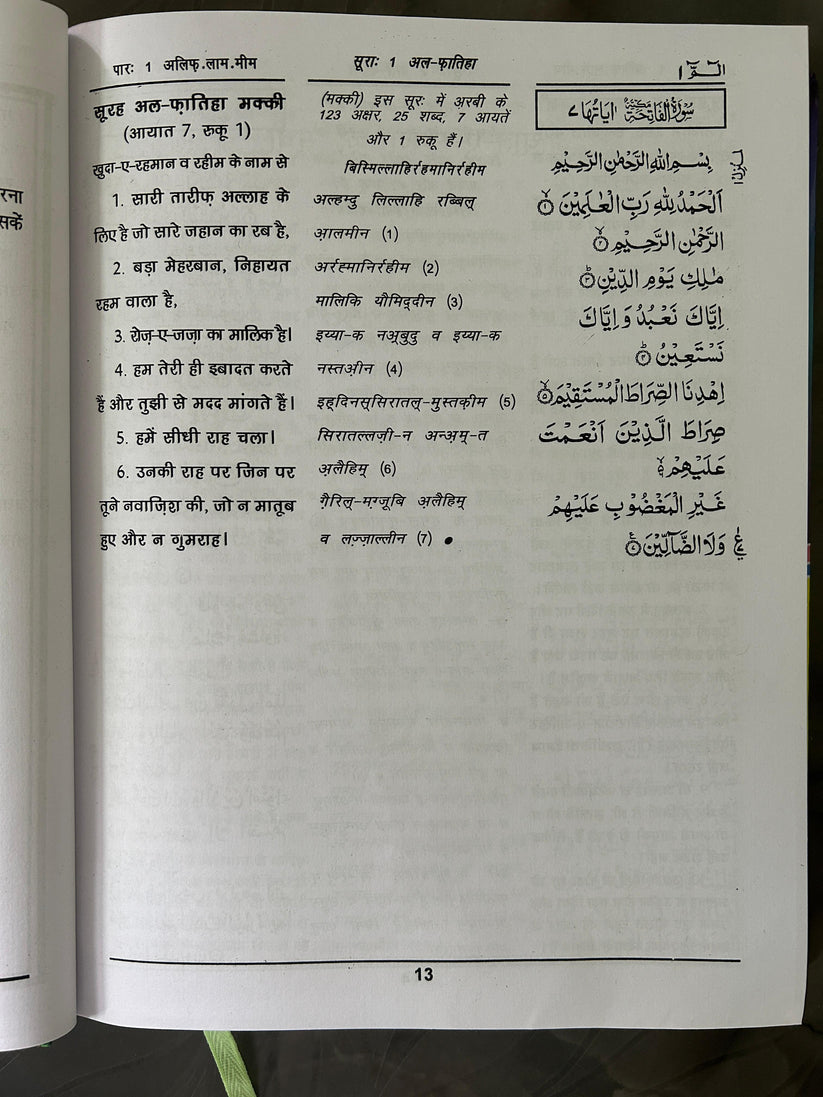 रना
सकें
पारः 1 अलिफ़.लाम.मीम
सूराः 1 अल-फ़ातिहा
सूरह अल-फ़ातिहा मक्की
(आयात 7, रुकू 1)
ख़ुदा-ए-रहमान व रहीम के नाम से
1. सारी तारीफ़ अल्लाह के
लिए है जो सारे जहान का रब है,
2. बड़ा मेहरबान, निहायत
रहम वाला है,
3. रोज़-ए-जज़ा का मालिक है।
4. हम तेरी ही इबादत करते
हैं और तुझी से मदद मांगते हैं।
5. हमें सीधी राह चला।
6. उनकी राह पर जिन पर
तूने नवाज़िश की, जो न मातूब
हुए और न गुमराह।
(मक्की) इस सूरः में अ़रबी के
123 अक्षर, 25 शब्द, 7 आयतें
और 1 रुकू हैं।
बिस्मिल्लाहिर्रहमानिर्रहीम
अल्हम्दु लिल्लाहि रब्बिल्
आ़लमीन (1)
अर्रह्मानिर्रहीम (2)
मालिकि यौमिद्दीन (3)
इय्या-क नअ़्बुदु व इय्या-क
नस्तअ़ीन (4)
इह्दिनस्सिरातल्-मुस्तक़ीम (5)
सिरातल्लज़ी-न अन्अ़म्-त
अ़लैहिम् (6)
ग़ैरिल्-मग़्ज़ूबि अ़लैहिम्
व लज़्ज़ाल्लीन (7) •
الٓـمّٓ ١
سُوْرَةُ الْفَاتِحَةِ مَكِّيَّةٌ اٰيَاتُهَا ٧
بِسْمِ اللهِ الرَّحْمٰنِ الرَّحِيْمِ
اَلْحَمْدُ لِلّٰهِ رَبِّ الْعٰلَمِيْنَ ۙ‏١
الرَّحْمٰنِ الرَّحِيْمِ ۙ‏٢
مٰلِكِ يَوْمِ الدِّيْنِ ؕ‏٣
اِيَّاكَ نَعْبُدُ وَ اِيَّاكَ
نَسْتَعِيْنُ ؕ‏٤
اِهْدِنَا الصِّرَاطَ الْمُسْتَقِيْمَ ۙ‏٥
صِرَاطَ الَّذِيْنَ اَنْعَمْتَ
عَلَيْهِمْ
غَيْرِ الْمَغْضُوْبِ عَلَيْهِمْ
وَلَا الضَّآلِّيْنَ
13